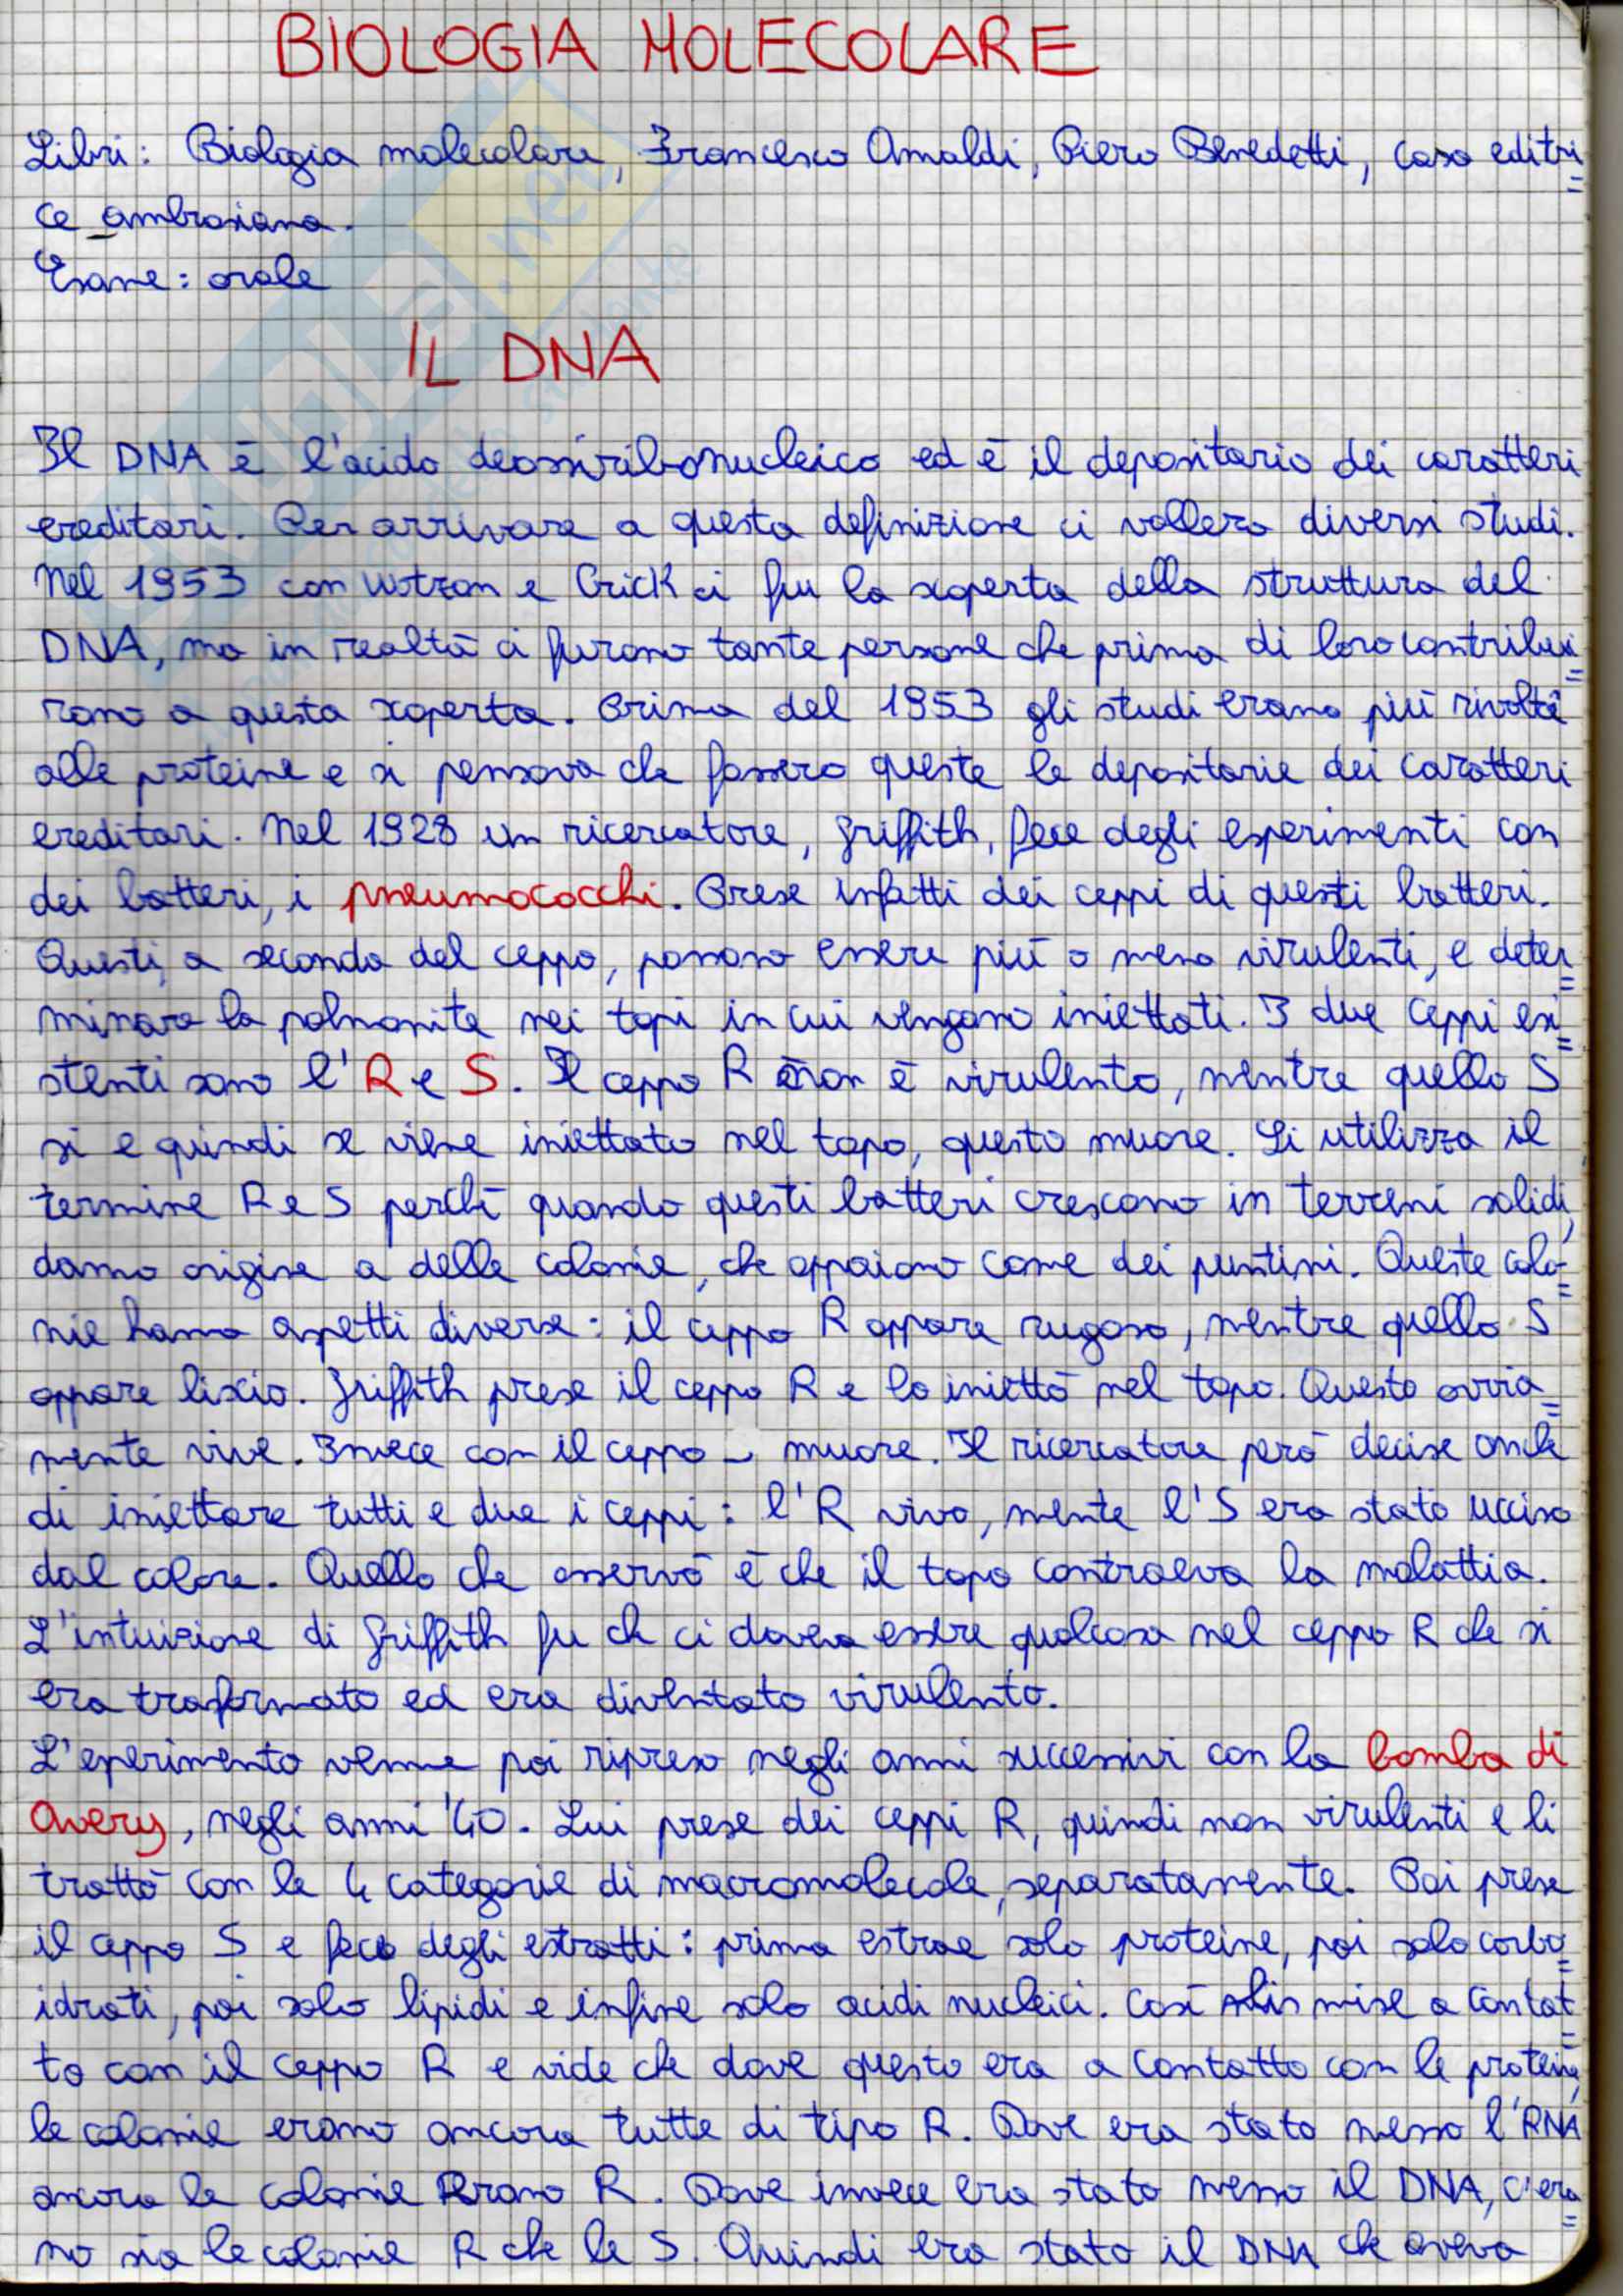 BIOLOGIA MOLECOLARE
Libri: Biologia molecolare, Francesco Amaldi, Piero Benedetti, casa editri
ce ambrosiana.
Esame: orale
IL DNA
Il DNA è l'acido deossiribonucleico ed è il depositario dei caratteri
ereditari. Per arrivare a questa definizione ci vollero diversi studi.
Nel 1953 con Watzon e Crick ci fu la scoperta della struttura del
DNA, ma in realtà ci furono tante persone che prima di loro contribui
rono a questa scoperta. Prima del 1953 gli studi erano più rivolti
alle proteine e si pensava che fossero queste le depositarie dei caratteri
ereditari. Nel 1928 un ricercatore, Griffith, fece degli esperimenti con
dei batteri, i pneumococchi. Prese infatti dei ceppi di questi batteri.
Questi, a seconda del ceppo, possono essere più o meno virulenti, e deter
minare la polmonite nei topi in cui vengono iniettati. I due ceppi esi
stenti sono l'R e S. Il ceppo R non è virulento, mentre quello S
si e quindi se viene iniettato nel topo, questo muore. Si utilizza il
termine R e S perchè quando questi batteri crescono in terreni solidi,
danno origine a delle colonie, che appaiono come dei puntini. Queste colo
nie hanno aspetti diverse: il ceppo R appare rugoso, mentre quello S
appare liscio. Griffith prese il ceppo R e lo iniettò nel topo. Questo ovvia
mente vive. Invece con il ceppo muore. Il ricercatore però decise anche
di iniettare tutti e due i ceppi: l'R vivo, mente l'S era stato ucciso
dal calore. Quello che osservò è che il topo contraeva la malattia.
L'intuizione di Griffith fu che ci doveva essere qualcosa nel ceppo R che si
era trasformato ed era diventato virulento.
L'esperimento venne poi ripreso negli anni successivi con la bomba di
Avery, negli anni '40. Lui prese dei ceppi R, quindi non virulenti e li
trattò con le 4 categorie di macromolecole, separatamente. Poi prese
il ceppo S e fece degli estratti: prima estrae solo proteine, poi solo carbo
idrati, poi solo lipidi e infine solo acidi nucleici. Così mise a contat
to con il ceppo R e vide che dove questo era a contatto con le proteine,
le colonie erano ancora tutte di tipo R. Dove era stato messo l'RNA
ancora le colonie erano R. Dove invece era stato messo il DNA, c'era
no sia le colonie R che le S. Quindi era stato il DNA che aveva